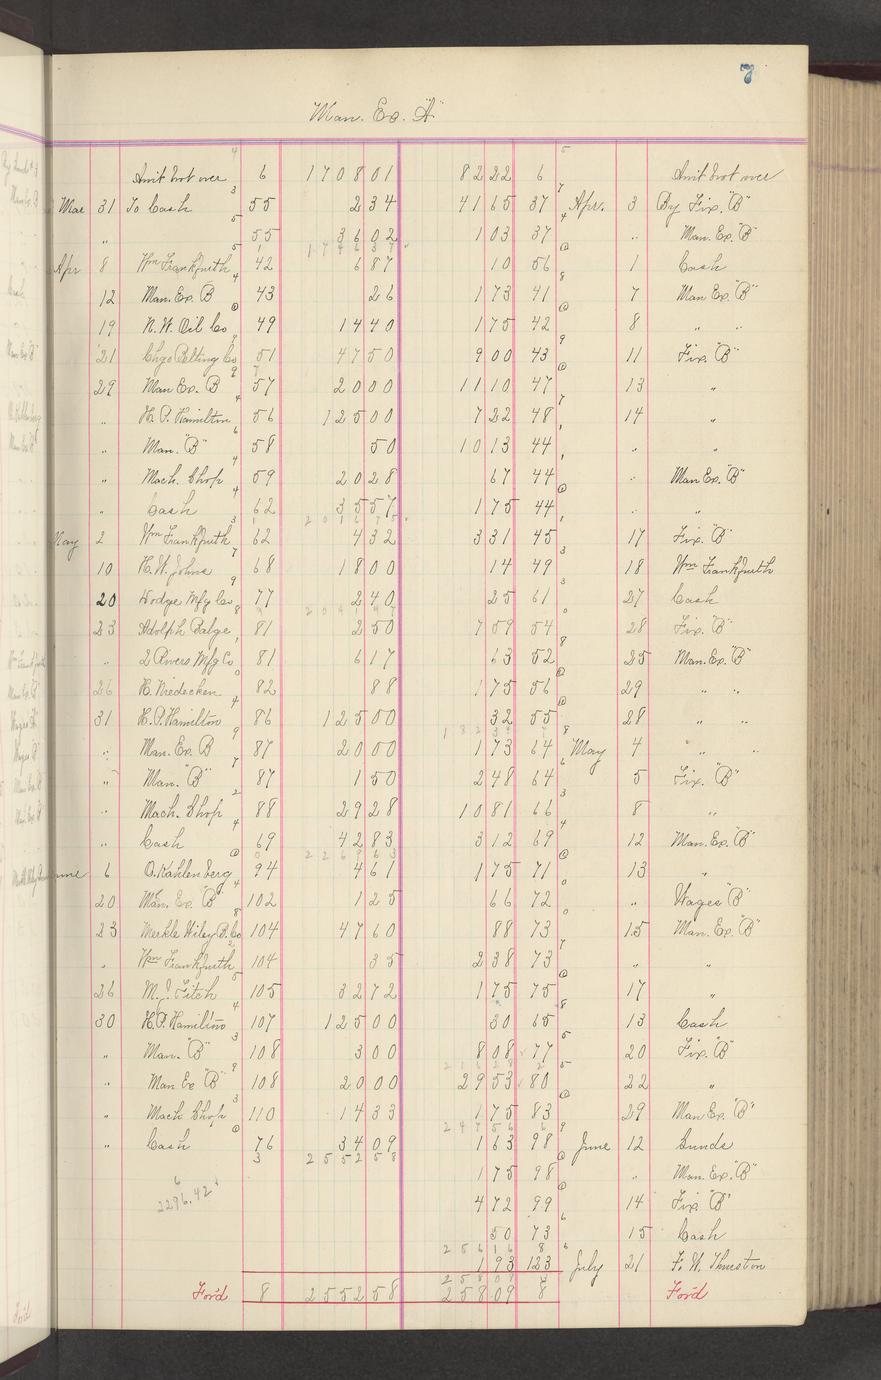 7
Man. Ex. "A"
Am't brot over 6 1708 01 82 22 6 Am't brot over
Mar 31 To Cash 55 2 34 41 65 37 Apr. 3 By Fix. "B"
" 55 36 02 1 03 37 " Man. Ex. "B"
Apr 8 Wm Frankfurth 42 6 87 10 56 1 Cash
12 Man. Ex. B 43 26 1 73 41 7 Man Ex. "B"
19 N. W. Oil Co 49 14 40 1 75 42 8 " "
21 Chgo Belting Co 51 47 50 9 00 43 11 Fix. "B"
29 Man Ex. B 57 20 00 11 10 47 13 "
" H. P. Hamilton 56 125 00 7 22 48 14 "
" Man. "B" 58 50 10 13 44 " "
" Mach. Shop 59 20 28 67 44 " Man Ex. "B"
" Cash 62 35 57 1 75 44 " "
May 2 Wm Frankfurth 62 4 32 3 31 45 17 Fix. "B"
10 H. W. Johns 68 18 00 14 49 18 Wm Frankfurth
20 Dodge Mfg Co 77 2 40 25 61 27 Cash
23 Adolph Balge 81 2 50 7 59 54 28 Fix. "B"
" 2 Rivers Mfg Co 81 6 17 63 52 25 Man. Ex. "B"
26 H. Niedecken 82 88 1 75 56 29 " "
31 H. P. Hamilton 86 125 00 32 55 28 " "
" Man. Ex. B 87 20 00 1 73 64 May 4 " "
" Man. "B" 87 1 50 2 48 64 5 Fix. "B"
" Mach. Shop 88 29 28 10 81 66 8 "
" Cash 69 42 83 3 12 69 12 Man. Ex. "B"
June 6 O. Kahlenberg 94 4 61 1 75 71 13 "
20 Man. Ex. "B" 102 1 25 66 72 " Wages "B"
23 Merkle Wiley B. Co 104 47 60 88 73 15 Man. Ex. "B"
" Wm Frankfurth 104 35 2 38 73 " "
26 M. J. Fitch 105 32 72 1 75 75 17 "
30 H. P. Hamilton 107 125 00 30 65 13 Cash
" Man. "B" 108 3 00 8 08 77 20 Fix. "B"
" Man Ex "B" 108 20 00 29 53 80 22 "
" Mach Shop 110 14 33 1 75 83 29 Man Ex. "B"
" Cash 76 34 09 1 63 98 June 12 Sunds
3 2552 58 1 75 98 " Man. Ex. "B"
2296.42 4 72 99 14 Fix. "B"
50 73 15 Cash
1 93 123 July 21 F. W. Thurston
Ford 8 2552 58 258 09 8 Ford